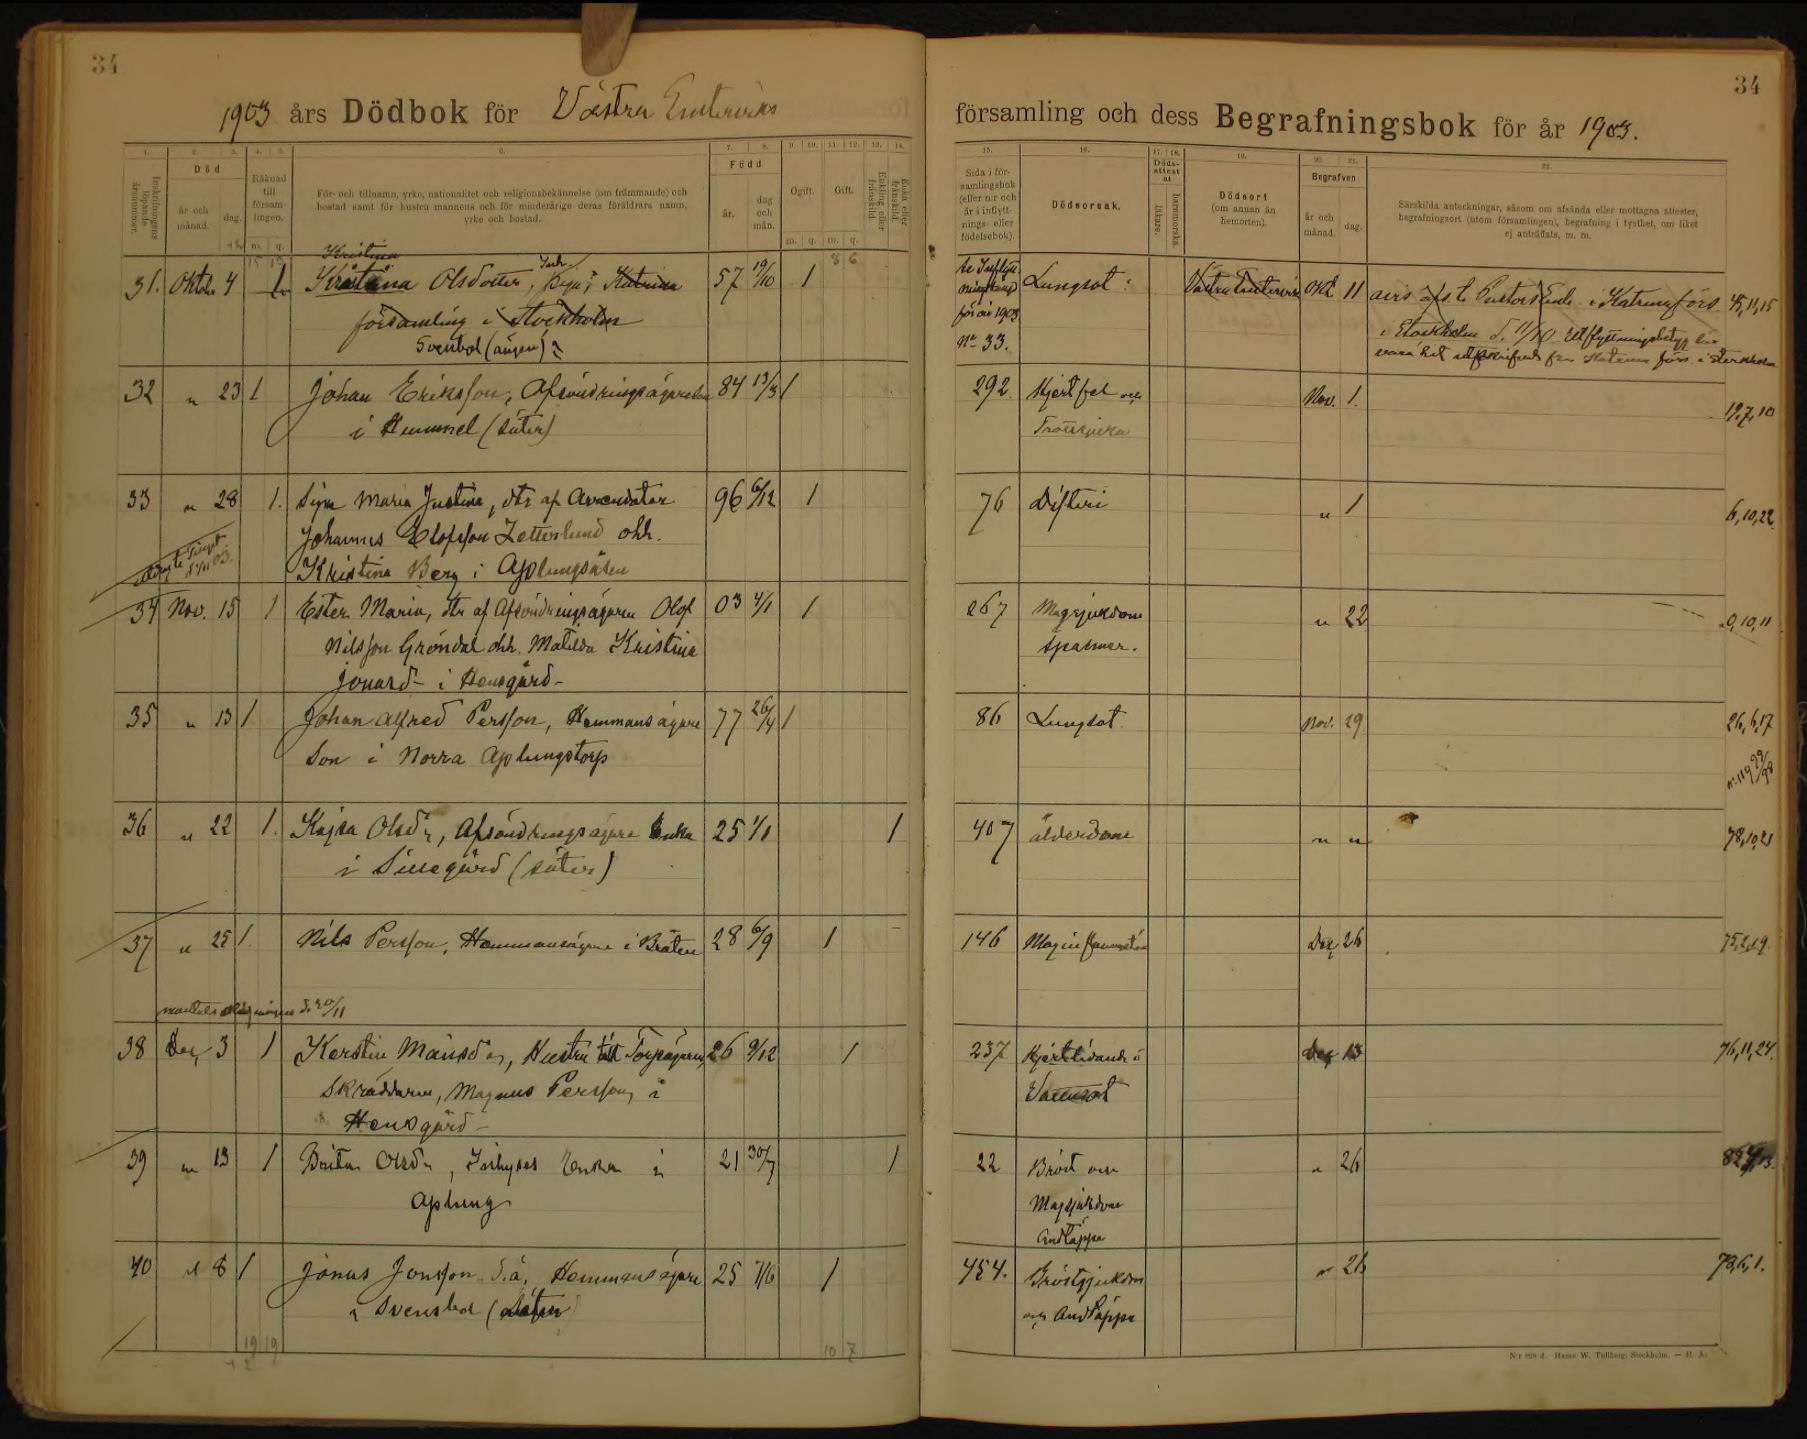 34
1903 års Dödbok för Västra Emtervik
1. 2. 3. 4. 5. 6. 7. 8. 9. 10. 11. 12. 13. 14.
Inskrifningens löpande årsnummer.
Död
år och månad.
dag.
Räknad till församlingen.
m. q.
För- och tillnamn, yrke, nationalitet och religionsbekännelse (om främmande) och
bostad samt för hustru mannens och för minderårige deras föräldrars namn,
yrke och bostad.
Född
år.
dag och mån.
Ogift.
m. q.
Gift.
m. q.
Enkling eller frånskild.
Enka eller frånskild.
8 6
Kristina
31. Oktbr 4 1 Kristina Olsdotter, Piga, Katrina 57 19/10 1
församling i Stockholm
Svensbol (ängen)
32 " 23 1 Johan Eriksson, Afsöndringsägare 84 13/3 1
i Hemmel (säter)
33 " 28 1. Signe Maria Justina, dtr af Arrendator 96 6/12 1
Johannes Elofsson Zetterlund ohh.
Kristina Berg i Aplungsåsen
34 Nov. 15 1 Ester Maria, dtr af Afsöndringsägaren Olof 03 4/1 1
Nilsson Gröndal ohh. Matilda Kristina
Jonasd- i Hensgård-
35 " 13 1 Johan Alfred Persson, Hemmansägare 77 26/4 1
Son i Norra Aplungstorp
36 " 22 1. Kajsa Olsdr, Afsöndringsägare Enka 25 1/1 1
i Sillegård (säter)
37 " 25 1 Nils Persson, Hemmansägare i Bråten 28 6/9 1
d. 20/11
38 Dec. 3 1 Kerstin Månsdr, Hustru till Torpägaren, 26 9/12 1
Skräddaren, Magnus Persson, i
Hensgård-
39 " 13 1 Britta Olsdr, Inhyses Enka i 21 30/7 1
Aplung
40 " 8 1 Jonas Jonsson d.ä. Hemmansägare 25 7/6 1
i Svensbol (säter)
19 19
10 7
34
församling och dess Begrafningsbok för år 1903.
15. 16. 17. 18. 19. 20. 21. 22.
Sida i församlingsbok (eller n:r och år i inflyttnings- eller födelsebok).
Dödsorsak.
Dödsattest af
läkare.
barnmorska.
Dödsort
(om annan än hemorten).
Begrafven
år och månad.
dag.
Särskilda anteckningar, såsom om afsända eller mottagna attester,
begrafningsort (utom församlingen), begrafning i tysthet, om liket
ej anträffats, m. m.
för år 1903
No 33.
Lungsot Västra Emtervik Okt 11
i Stockholm d. 11/10 Utflyttningsbetyg
45,11,15
292 Hjertfel och Nov. 1. 19,7,10
76 Difteri " 1 6,10,22
267 Magsjukdom " 22 0,10,11
spasmer.
86 Lungsot Nov. 29 26,6,17
407 ålderdom " " 78,10,21
146 Maginflammation Dec 26 75,2,19
237 Hjertlidande o Dec 13 76,11,24.
Vattusot
22 Bröst och " 26
Magsjukdom
Andtäppa
454. Bröstsjukdom " 26 78,6,1.
och Andtäppa
N:r 928 d. Hasse W. Tullberg, Stockholm. — H. A.